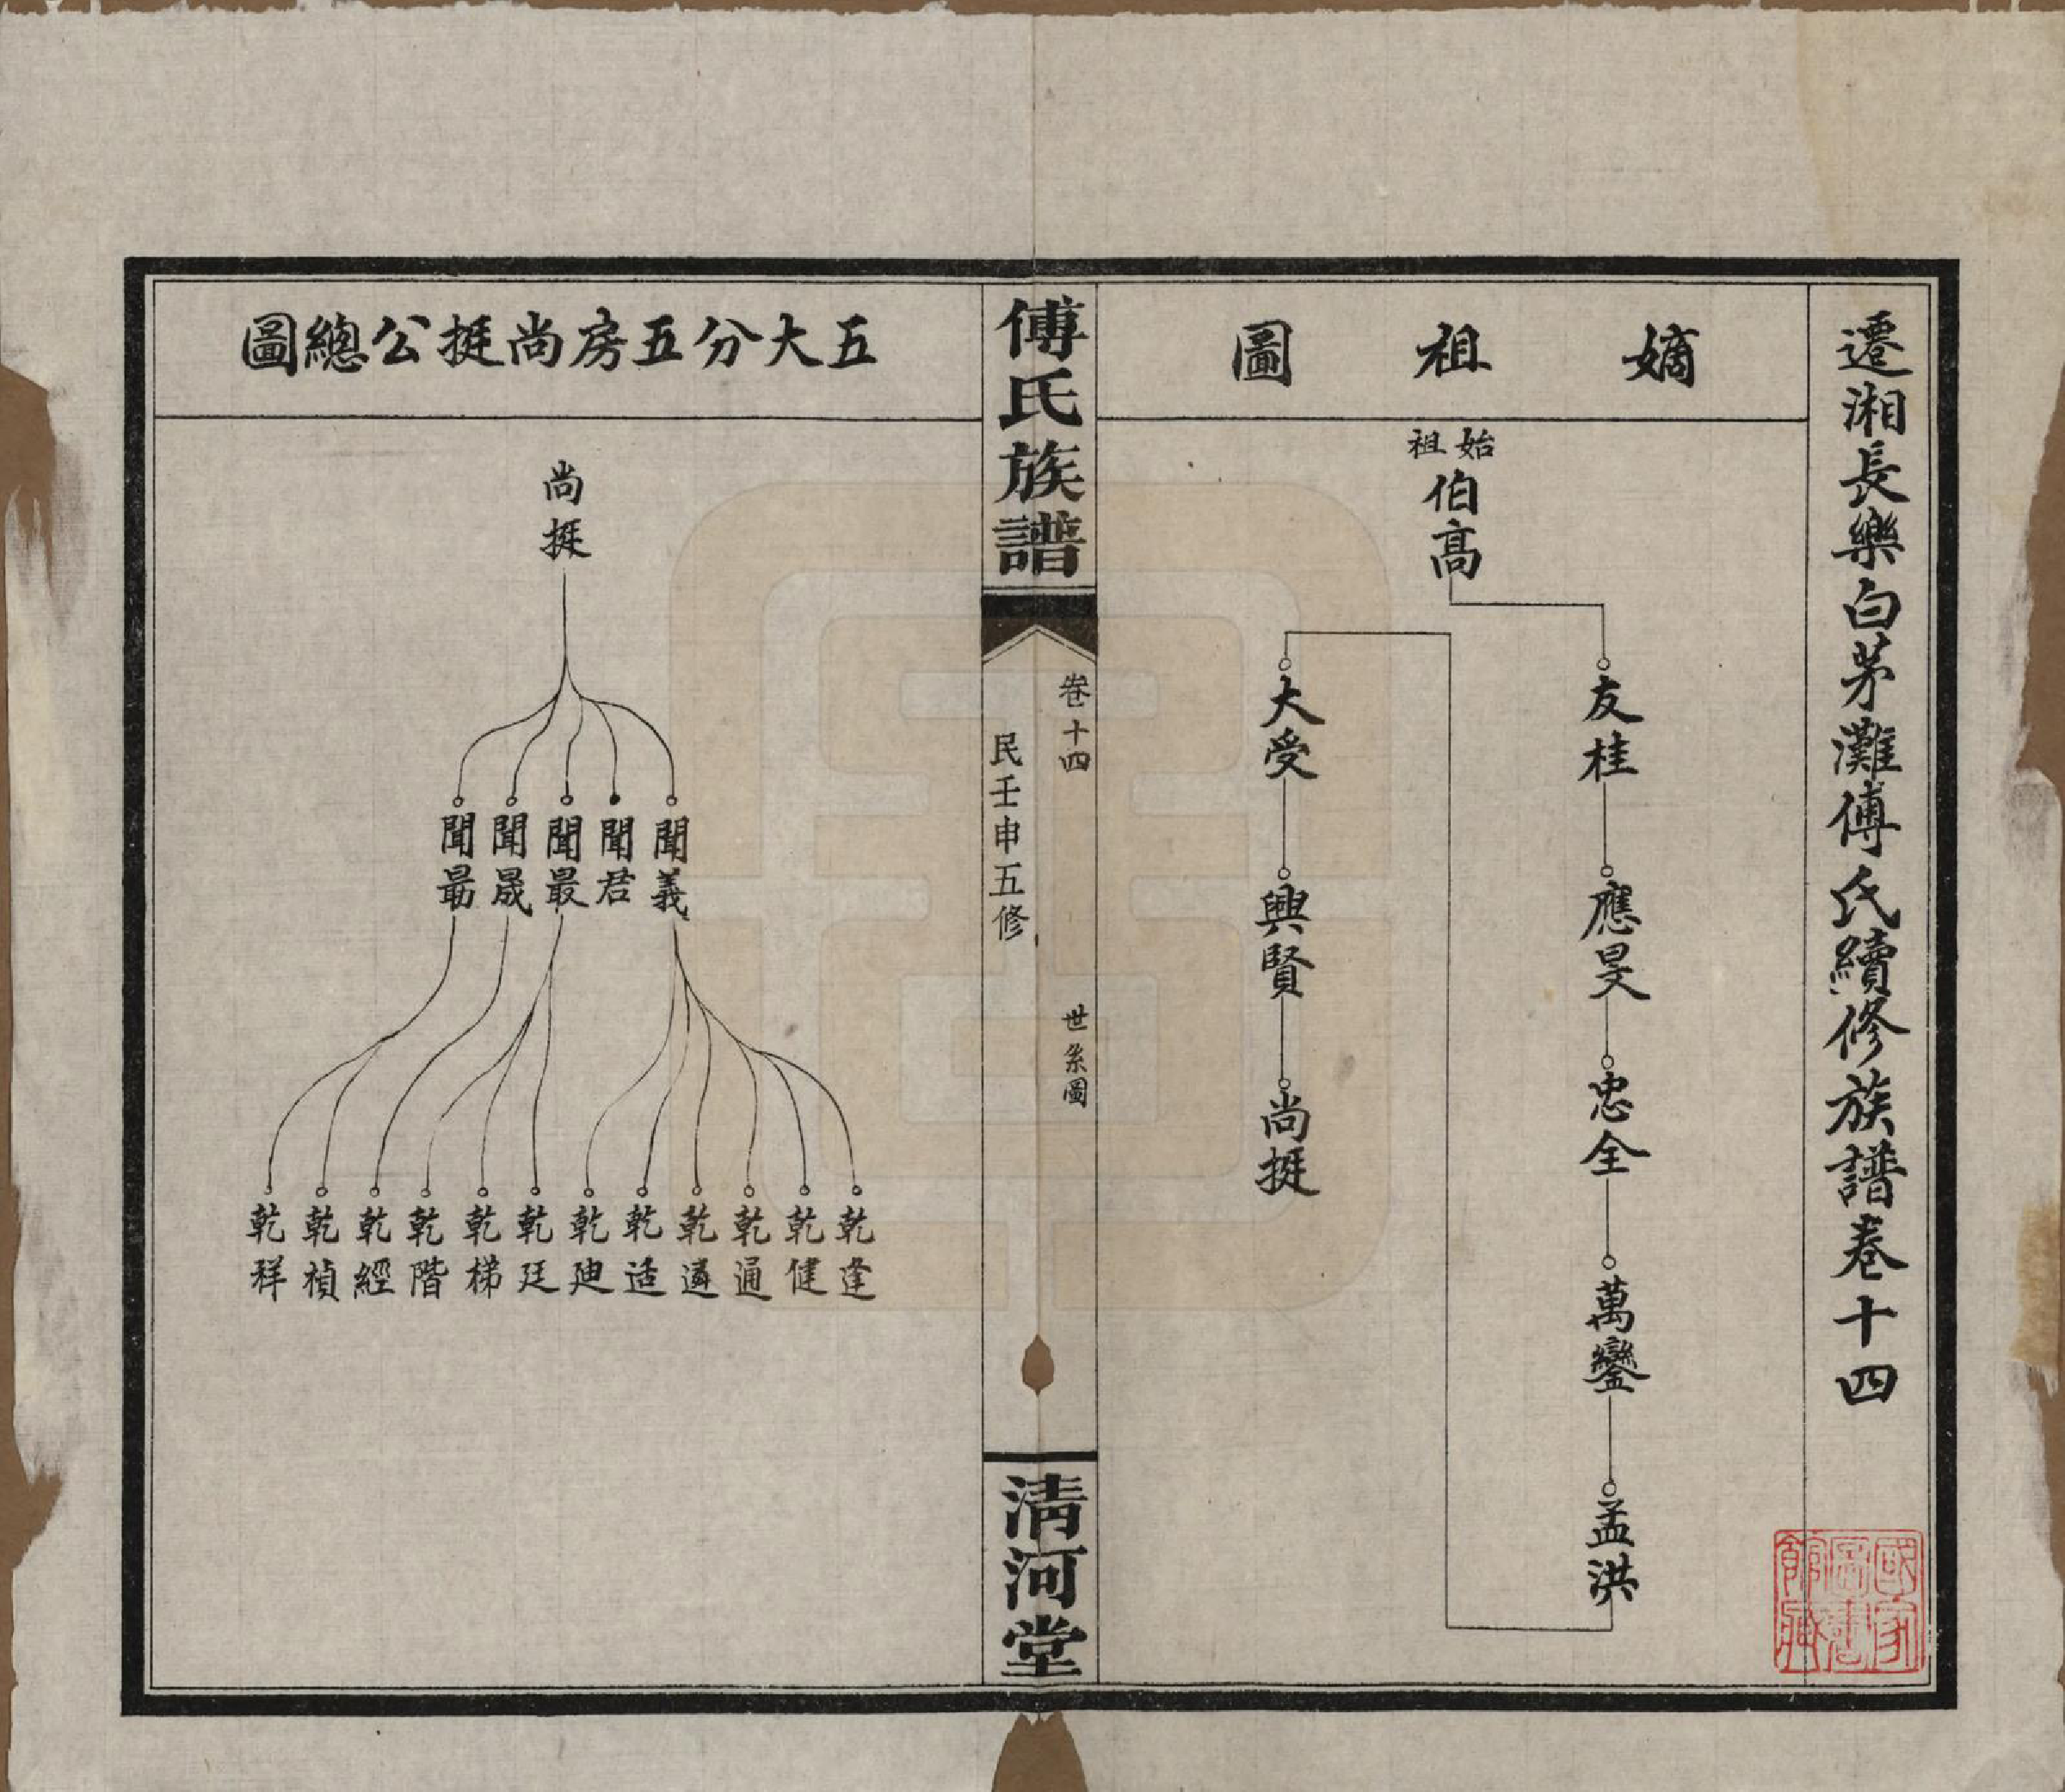 遷湘長樂白茅灘傅氏續修族譜卷十四
嫡祖圖
始祖
伯高
友桂
應旻
忠全
萬鑾
孟洪
大受
興賢
尚挺
傅氏族譜
卷十四
世系圖
民壬申五修
清河堂
五大分五房尚挺公總圖
尚挺
聞義
聞君
聞最
聞晟
聞勗
乾逢
乾健
乾通
乾遴
乾适
乾迪
乾廷
乾梯
乾階
乾經
乾禎
乾祥
國家圖書館藏